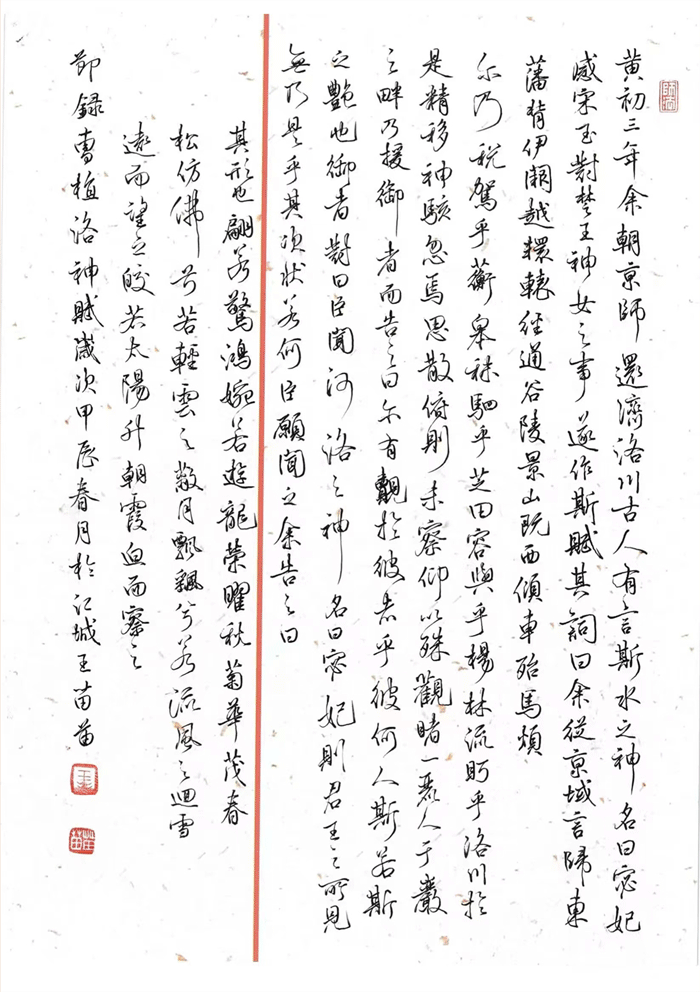 黃初三年余朝京師還濟洛川古人有言斯水之神名曰宓妃
感宋玉對楚王神女之事遂作斯賦其詞曰余從京域言歸東
藩背伊闕越轘轅經通谷陵景山既西傾車殆馬煩
尔乃稅駕乎蘅皋秣駟乎芝田容與乎楊林流眄乎洛川於
是精移神駭忽焉思散俯則未察仰以殊觀睹一麗人于巖
之畔乃援御者而告之曰尔有覿於彼者乎彼何人斯若斯
之艷也御者對曰臣聞河洛之神名曰宓妃則君王之所見
無乃是乎其狀若何臣願聞之余告之曰
其形也翩若驚鴻婉若遊龍榮曜秋菊華茂春
松仿佛兮若輕雲之蔽月飄飄兮若流風之迴雪
遠而望之皎若太陽升朝霞迫而察之
節錄曹植洛神賦歲次甲辰春月於江城王苗苗